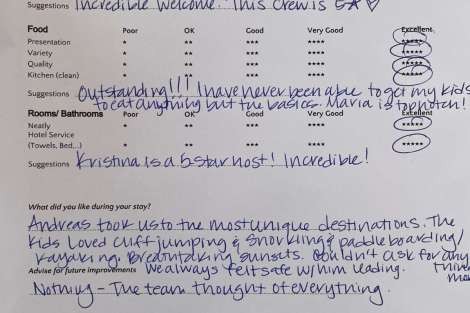 Suggestions Incredible welcome. This Crew is 5☆♡
Food Poor OK Good Very Good Excellent
Presentation * ** *** **** *****
Variety * ** *** **** *****
Quality * ** *** **** *****
Kitchen (clean) * ** *** **** *****
Suggestions Outstanding!!! I have never been able to get my kids
to eat anything but the basics. Maria is top notch!
Rooms/ Bathrooms Poor OK Good Very Good Excellent
Neatly * ** *** **** *****
Hotel Service
(Towels, Bed...) * ** *** **** *****
Suggestions Kristina is a 5 star host! Incredible!
What did you like during your stay?
Andreas took us to the most unique destinations. The
kids loved cliff jumping & snorkling & paddle boarding/
kayaking. Breathtaking sunsets. Couldn't ask for any
thing
more
Advise for future improvements We always felt safe w/him leading.
Nothing - The team thought of everything.